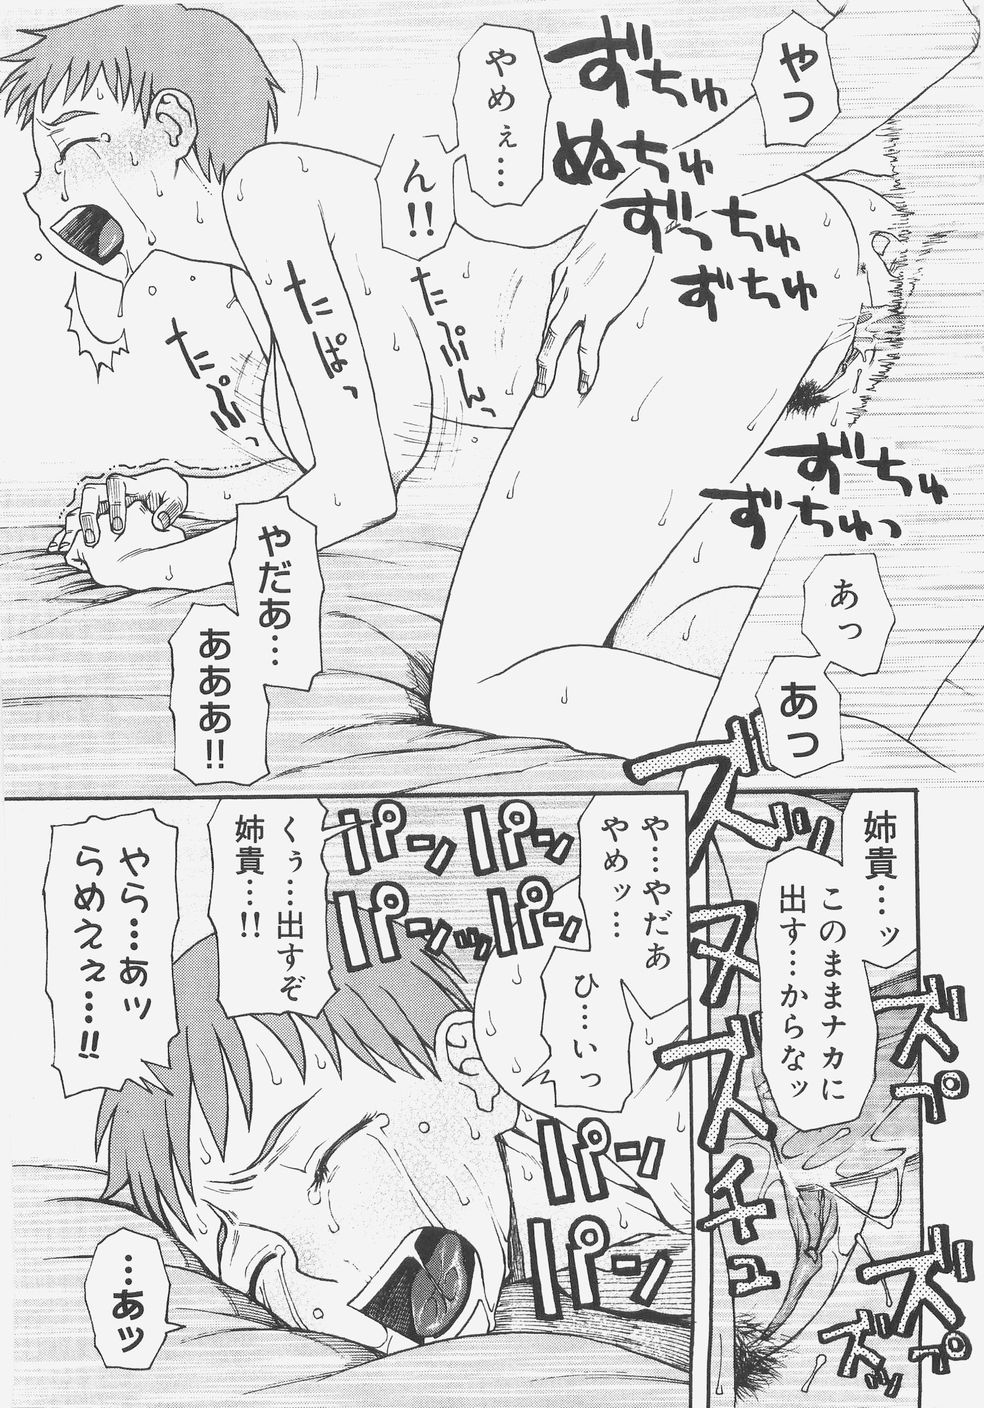 やっ
やめぇ…
ん!!
ずちゅ
ぬちゅ
ずっちゅ
ずちゅ
たぷんっ
たぱっ
たぷっ
ずちゅ
ずちゅっ
やだあ…
あああ!!
あっ
あっ
姉貴…ッ
このままナカに
出す…からなッ
ズ
ヌ
ズズ
チュ
ズプ
ズプ
ズッ
や…やだあ
やめッ…
ひ…いっ
パンパン
パンパンッ
パン
パン
くぅ…出すぞ
姉貴…!!
やら…あッ
らめえぇ…!!
…あッ